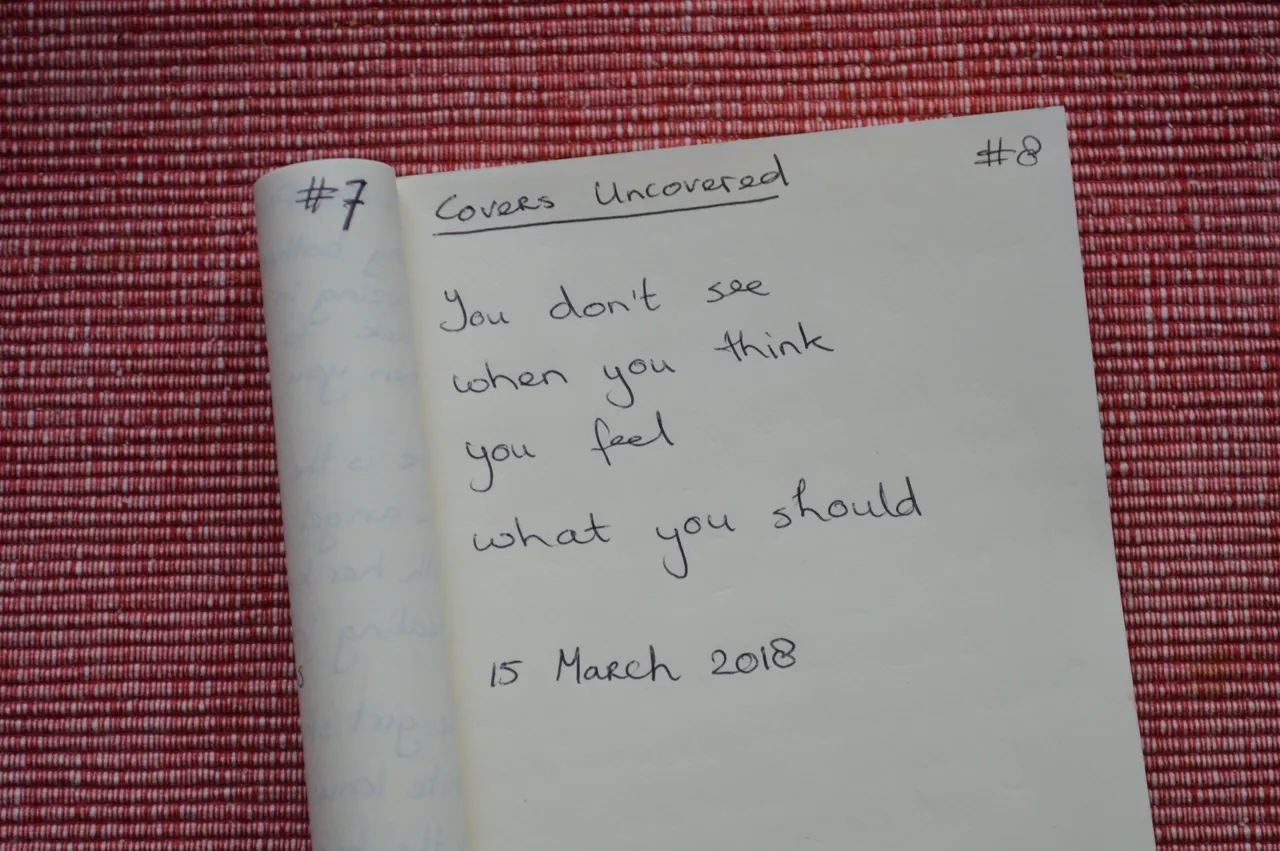 #7
Covers Uncovered
#8
You don't see
when you think
you feel
what you should
15 March 2018